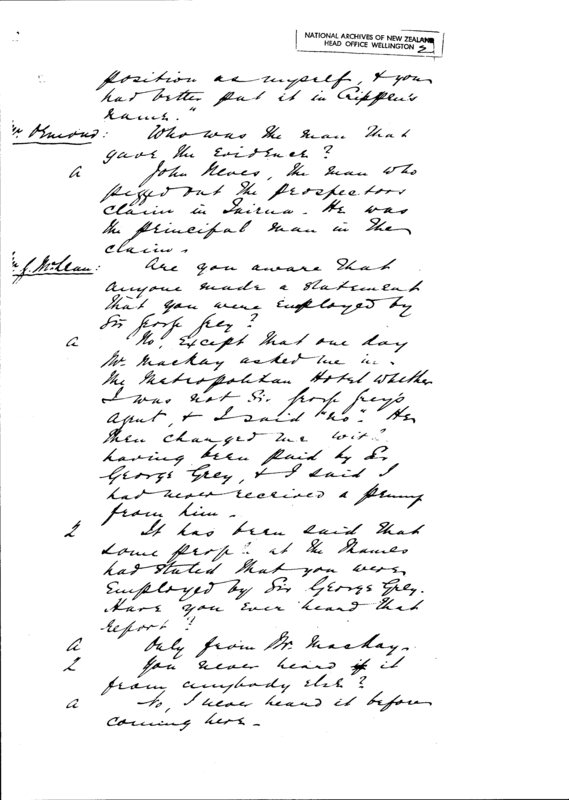 NATIONAL ARCHIVES OF NEW ZEALAND
HEAD OFFICE WELLINGTON
position as myself, & you
had better put it in Crippen's
name."
Mr. Ormond: Who was the man that
gave the evidence?
a John Neves, the man who
pegged out the prospectors
claim in Tairua. He was
the principal man in the
claim.
Mr J. McLean: Are you aware that
anyone made a statement
that you were employed by
Sir George Grey?
a No, except that one day
Mr. Mackay asked me in
the Metropolitan Hotel whether
I was not Sir George Grey's
agent, & I said "no". He
then charged me with
having been paid by Sir
George Grey, & I said I
had never received a penny
from him.
2 It has been said that
some people at the Thames
had stated that you were
employed by Sir George Grey.
Have you ever heard that
report?
a Only from Mr. Mackay.
2 You never heard it
from anybody else?
a No, I never heard it before
coming here.